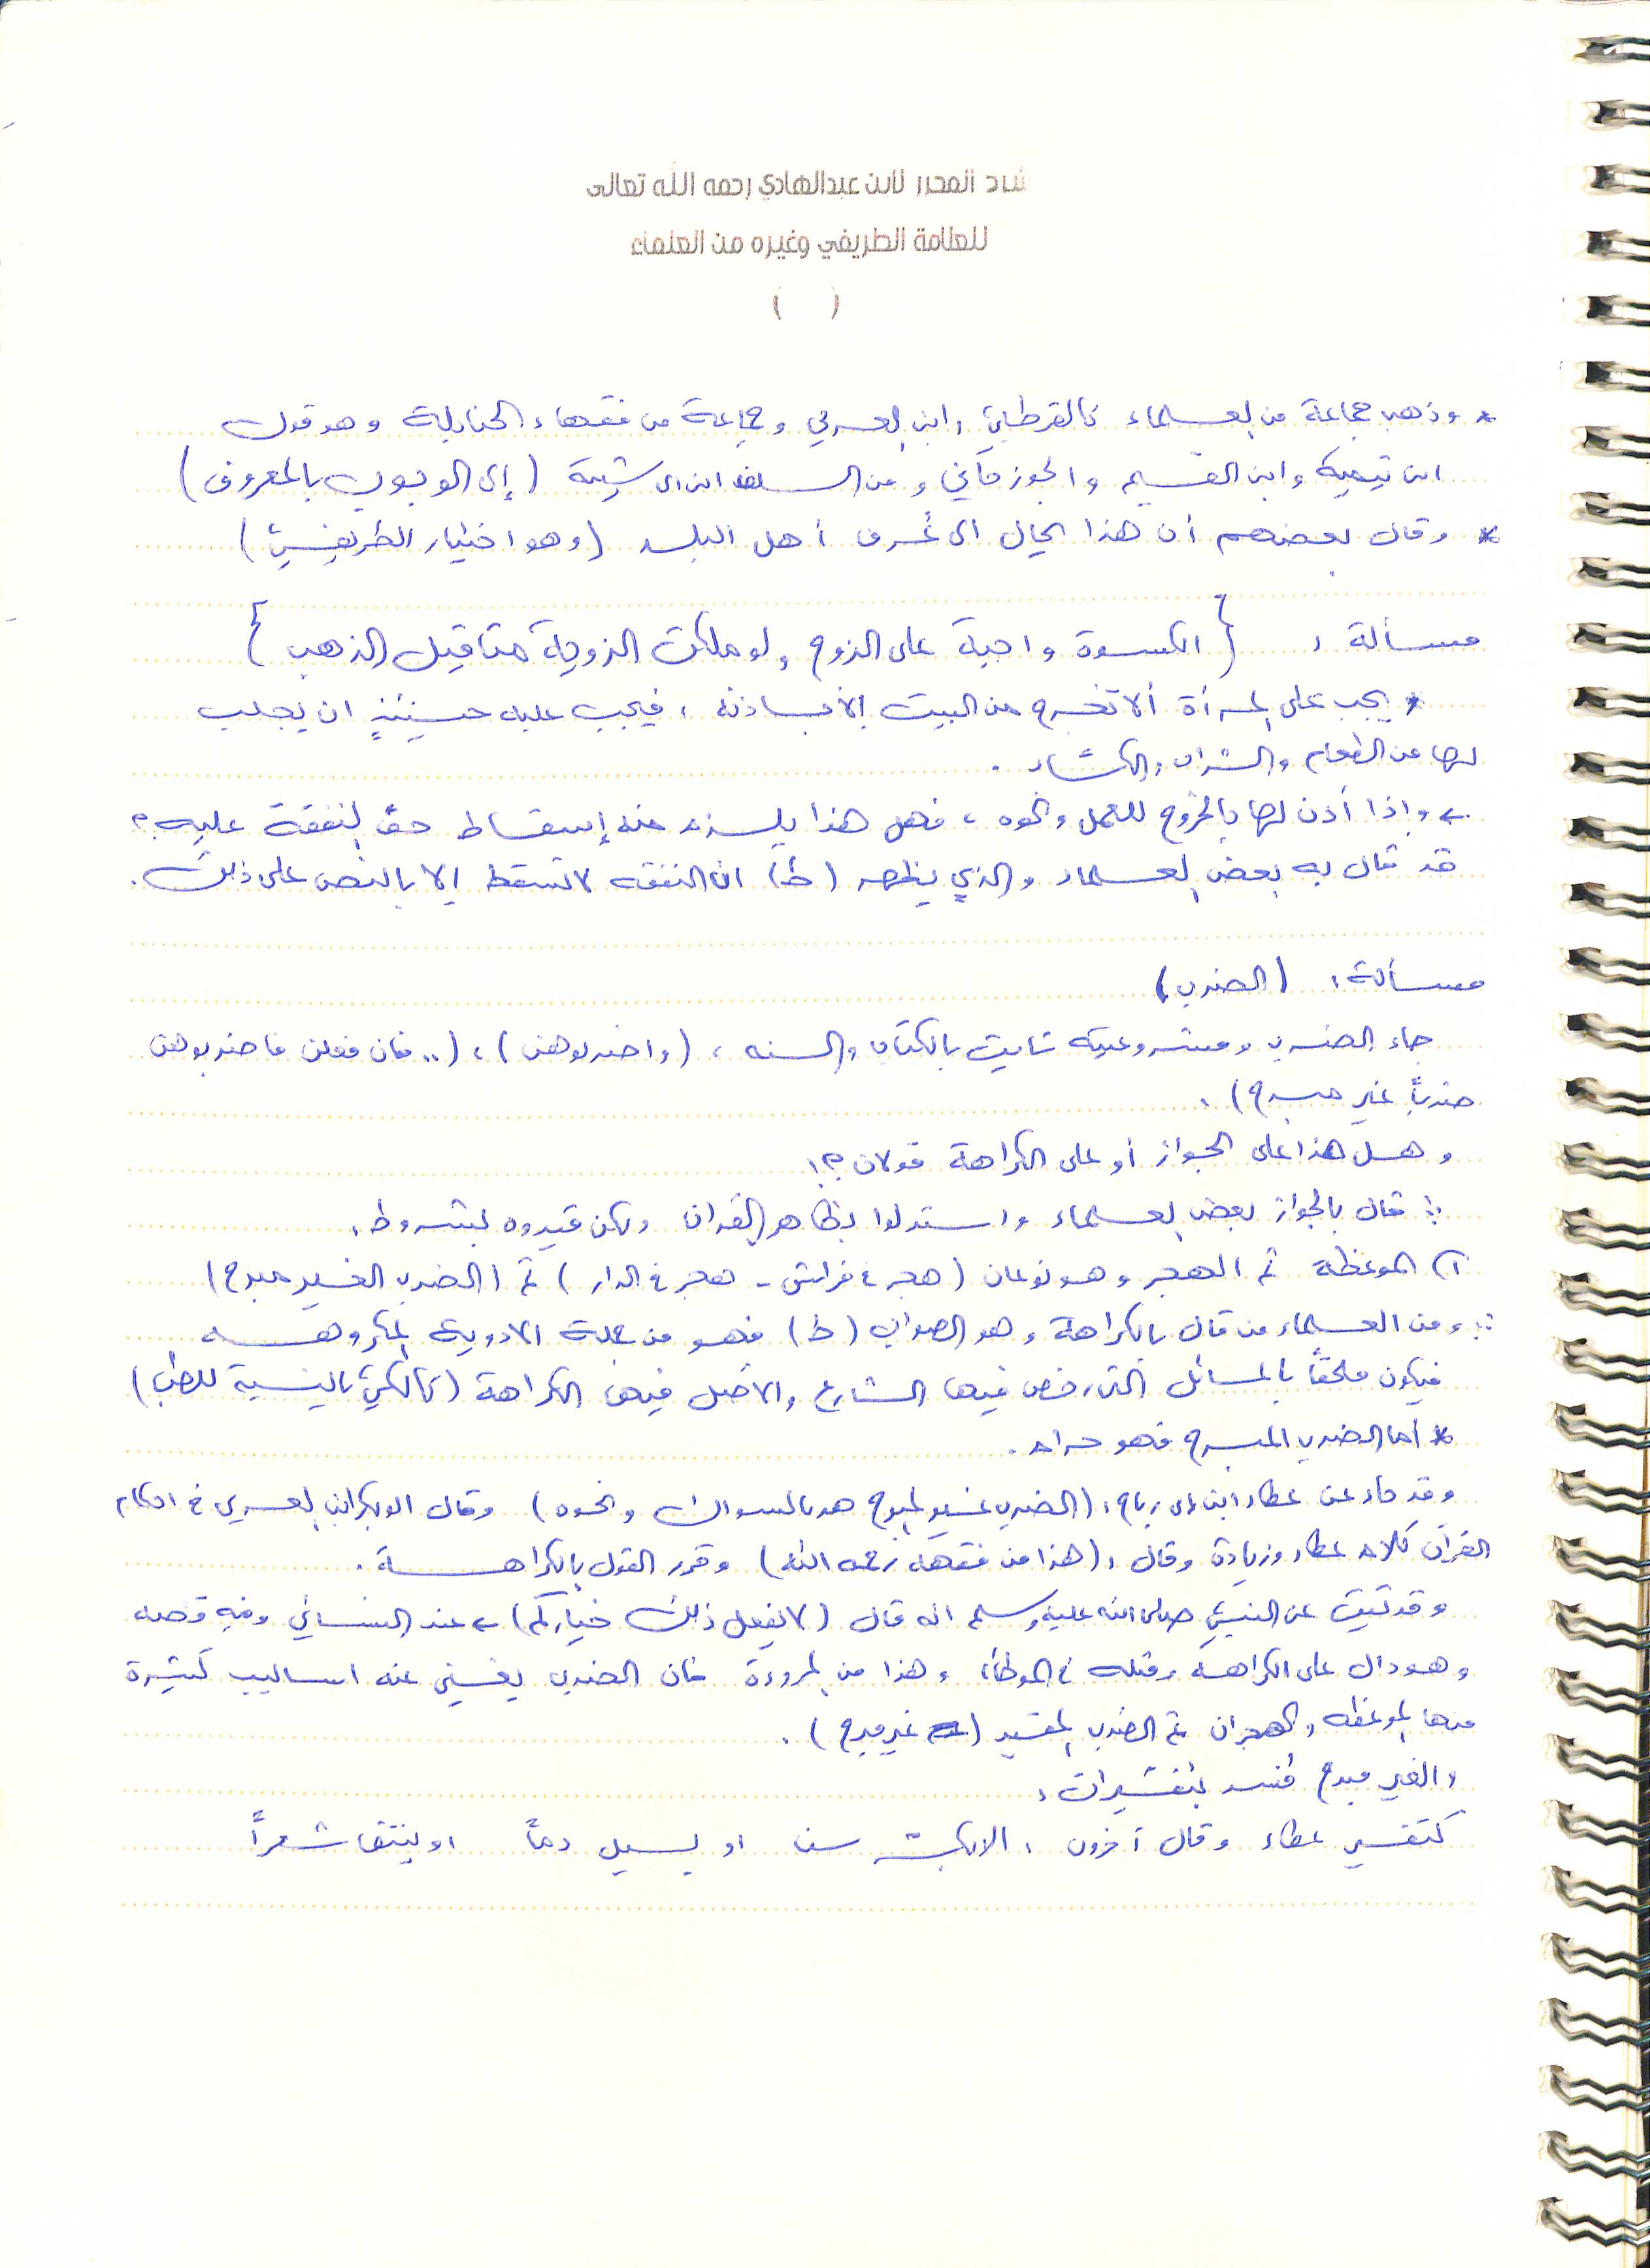 شرح المحرر لابن عبدالهادي رحمه الله تعالى
للعلامة الطريفي وغيره من العلماء
( )
* وذهب جماعة من العلماء كالقرطبي وابن العربي وجماعة من فقهاء الحنابلة وهو قول
ابن تيمية وابن القيم والجوزجاني ومن السلف ابن ابي شيبة (إلى الوجوب بالمعروف)
* وقال بعضهم أن هذا يحال الى عُرف أهل البلد (وهو اختيار الطريفي)
مسألة : { الكسوة واجبة على الزوج ولو ملكت الزوجة مثاقيل الذهب }
* يجب على المرأة ألا تخرج من البيت إلا بإذنه ، فيجب عليه حينئذٍ ان يجلب
لها من الطعام والشراب والكساء .
← وإذا أذن لها بالخروج للعمل ونحوه ، فهل هذا يلزم منه إسقاط حق النفقة عليه ؟
قد قال به بعض العلماء والذي يظهر (ط) ان النفقه لا تسقط إلا بالنص على ذلك .
مسألة : (الضرب)
جاء الضرب ومشروعيته ثابت بالكتاب والسنه ، (واضربوهن) ، (.. فان فعلن فاضربوهن
ضرباً غير مبرح) .
وهل هذا على الجواز أو على الكراهة قولان ؟!
∴ قال بالجواز بعض العلماء واستدلوا بظاهر القران ولكن قيدوه بشروط :
١) الموعظة ثم الهجر وهو نوعان (هجر في فراش - هجر في الدار) ثم (الضرب الغير مبرح)
∴ ومن العلماء من قال بالكراهة وهو الصواب (ط) فهو من جملة الادوية المكروهه
فيكون ملحقاً بالمسائل التي رخص فيها الشارع والاصل فيها الكراهة (كالكي بالنسبة للطب)
* أما الضرب المبرح فهو حرام .
وقد جاء عن عطاء ابن ابي رباح : (الضرب غير المبرح هو بالسواك ونحوه) وقال ابو بكر ابن العربي في احكام
القرآن كلام عطاء وزيادة وقال : (هذا من فقهه رحمه الله) وقرر القول بالكراهة .
وقد ثبت عن النبي صلى الله عليه وسلم انه قال (لا يفعل ذلك خياركم) ← عند النسائي وفيه قصه
وهو دال على الكراهه ومثله في الموطأ ، وهذا من المروءة فان الضرب يغني عنه اساليب كثيرة
منها الموعظه والهجران ثم الضرب المقيد ( غير مبرح) .
والغير مبرح فسر بتفسيرات :
كتفسير عطاء وقال آخرون : الا يكسر سن او يسيل دماً او ينتف شعراً